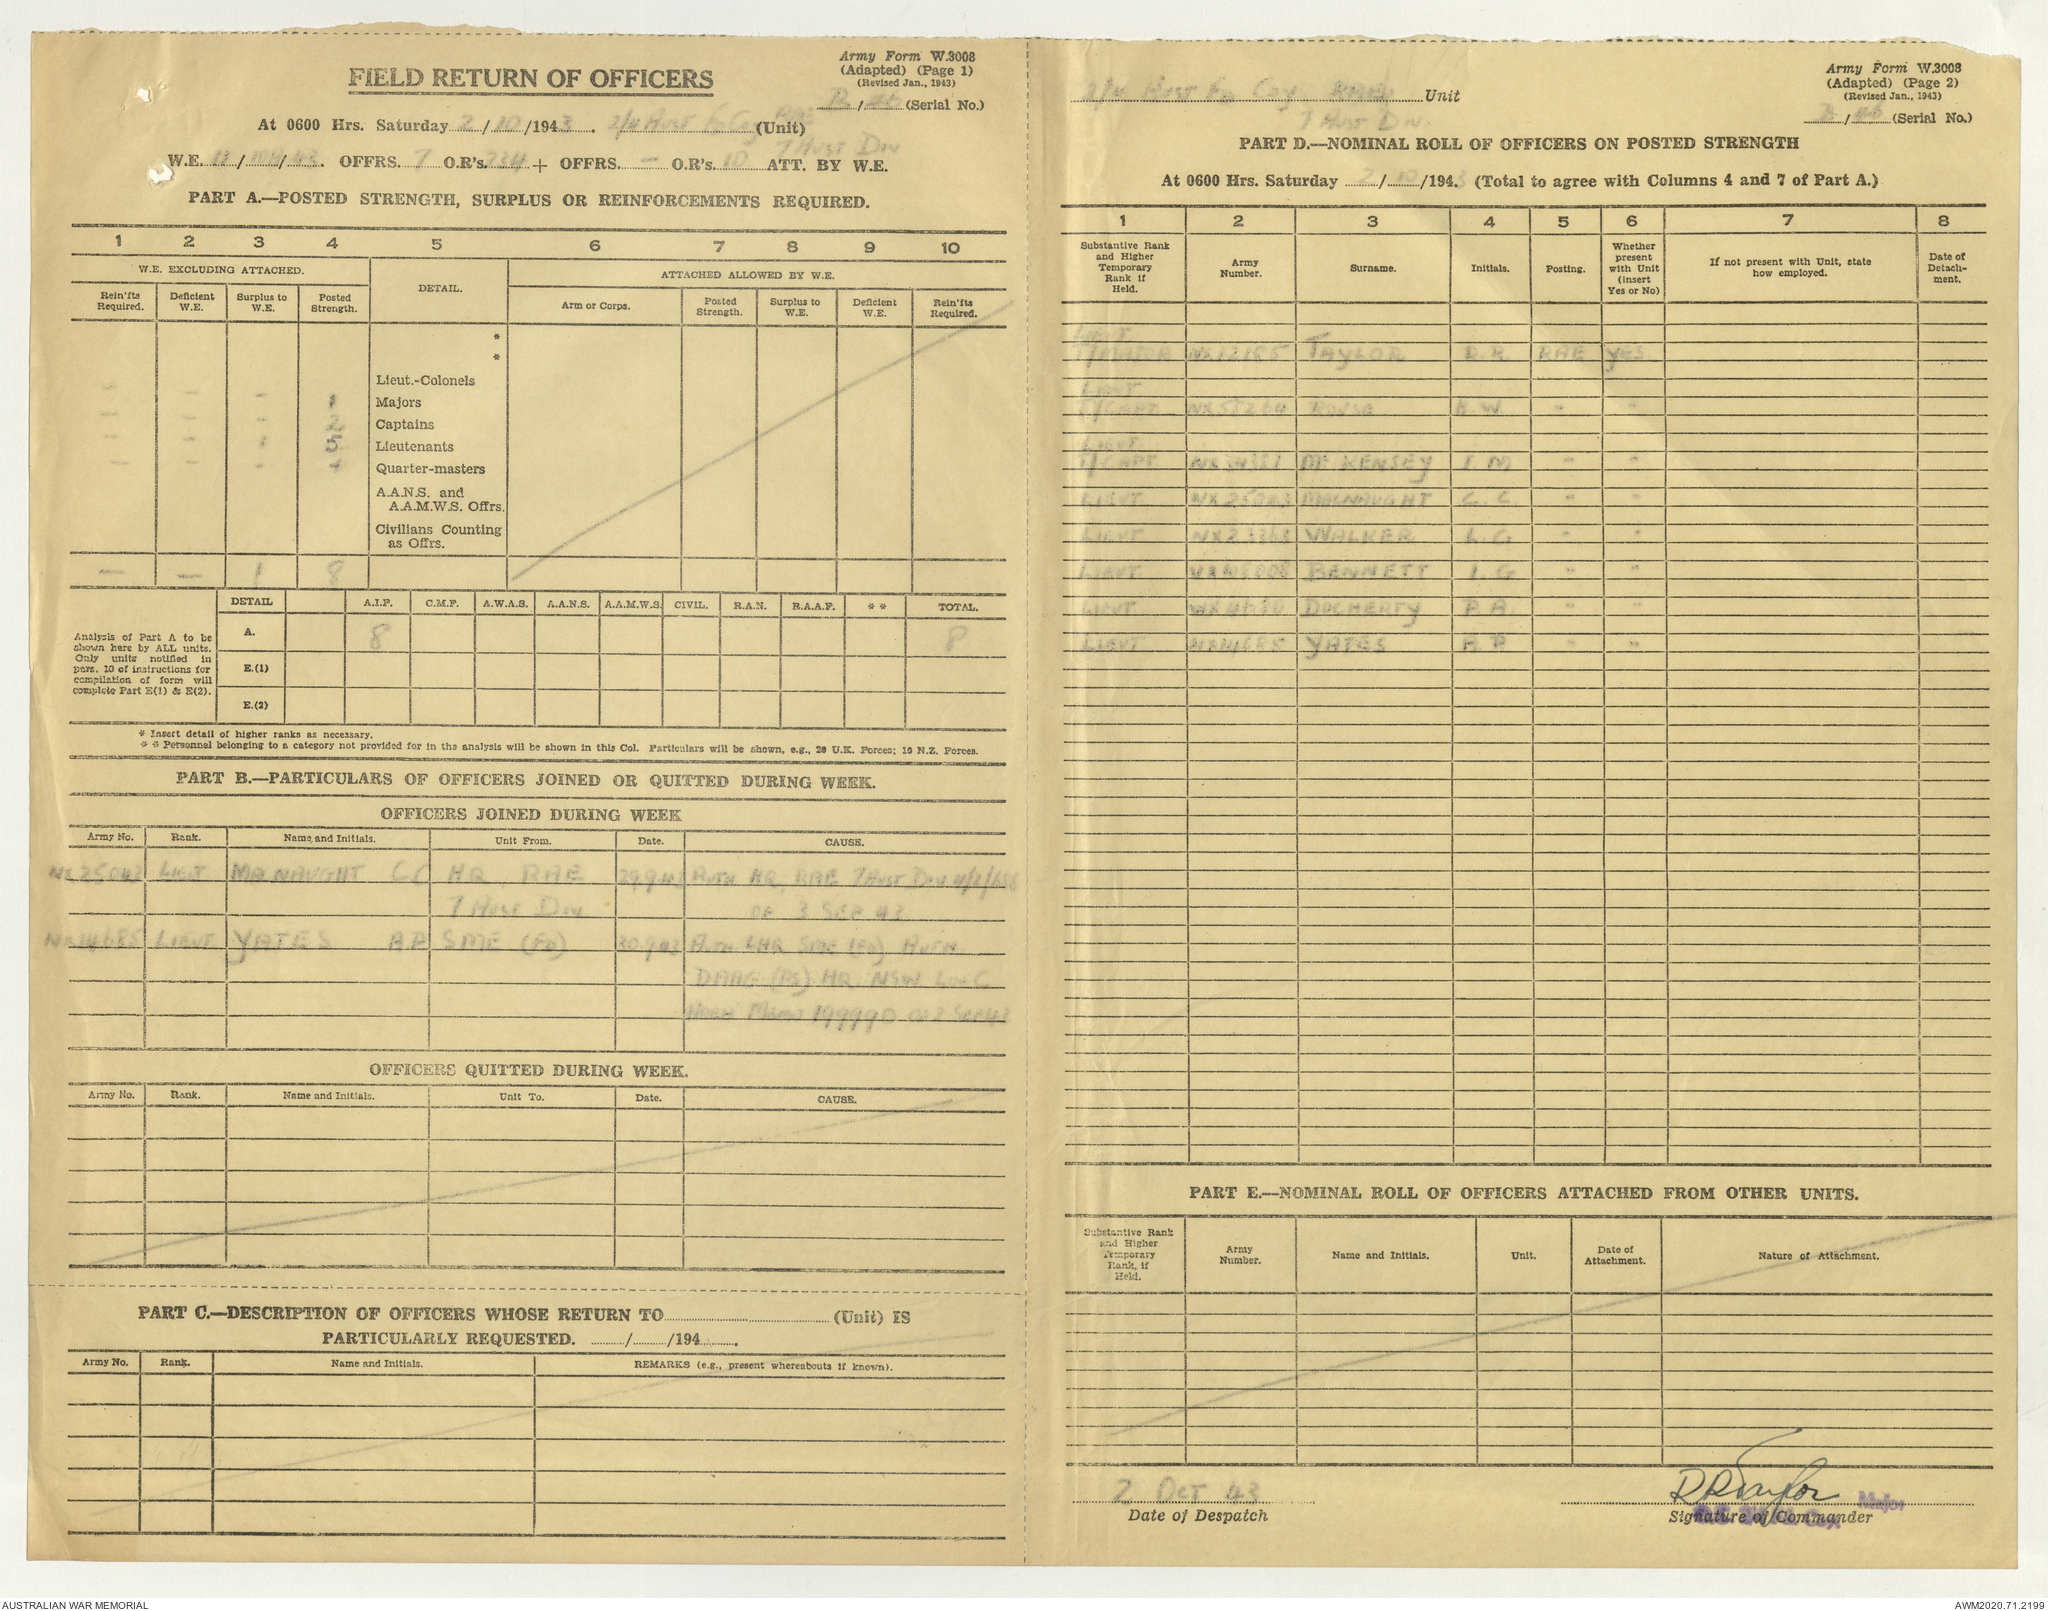 Army Form W.3008
(Adapted) (Page 1)
(Revised Jan., 1943)
FIELD RETURN OF OFFICERS
(Serial No.)
At 0600 Hrs. Saturday 2/10/1943. 2/4 Aust Fd Coy RAE (Unit)
7 Aust Div
W.E. OFFRS. 7 O.R's. 234 + OFFRS. — O.R's. 10 ATT. BY W.E.
PART A.—POSTED STRENGTH, SURPLUS OR REINFORCEMENTS REQUIRED.
1 2 3 4 5 6 7 8 9 10
W.E. EXCLUDING ATTACHED. DETAIL. ATTACHED ALLOWED BY W.E.
Rein'fts Required. Deficient W.E. Surplus to W.E. Posted Strength. Arm or Corps. Posted Strength. Surplus to W.E. Deficient W.E. Rein'fts Required.
*
*
Lieut.-Colonels
Majors
Captains
Lieutenants
Quarter-masters
A.A.N.S. and
A.A.M.W.S. Offrs.
Civilians Counting
as Offrs.
— — 1 8
DETAIL A.I.F. C.M.F. A.W.A.S. A.A.N.S. A.A.M.W.S. CIVIL. R.A.N. R.A.A.F. * * TOTAL.
A. 8 8
E.(1)
E.(2)
Analysis of Part A to be
shown here by ALL units.
Only units notified in
para. 10 of instructions for
compilation of form will
complete Part E(1) & E(2).
* Insert detail of higher ranks as necessary.
* * Personnel belonging to a category not provided for in the analysis will be shown in this Col. Particulars will be shown, e.g., 20 U.K. Forces; 10 N.Z. Forces.
PART B.—PARTICULARS OF OFFICERS JOINED OR QUITTED DURING WEEK.
OFFICERS JOINED DURING WEEK
Army No. Rank. Name and Initials. Unit From. Date. CAUSE.
LIEUT MACNAUGHT CC HQ RAE 29.9.43 AUTH HQ RAE 7 AUST DIV
7 AUST DIV OF 3 SEP 43
NX114685 LIEUT YATES AP SME (FD) 30.9.43 AUTH LHQ SME (FD) AUTH
HQ NSW L OF C
MEMO 199990 SEP 43
OFFICERS QUITTED DURING WEEK.
Army No. Rank. Name and Initials. Unit To. Date. CAUSE.
PART C.—DESCRIPTION OF OFFICERS WHOSE RETURN TO (Unit) IS
PARTICULARLY REQUESTED. / /194 .
Army No. Rank. Name and Initials. REMARKS (e.g., present whereabouts if known).
Army Form W.3008
(Adapted) (Page 2)
(Revised Jan., 1943)
2/4 Aust Fd Coy. RAE Unit
7 Aust Div.
(Serial No.)
PART D.—NOMINAL ROLL OF OFFICERS ON POSTED STRENGTH
At 0600 Hrs. Saturday 2/10/1943 (Total to agree with Columns 4 and 7 of Part A.)
1 2 3 4 5 6 7 8
Substantive Rank and Higher Temporary Rank if Held. Army Number. Surname. Initials. Posting. Whether present with Unit (insert Yes or No) If not present with Unit, state how employed. Date of Detachment.
LIEUT
T/MAJOR NX12185 TAYLOR R.R. RAE YES
LIEUT
T/CAPT ROUSE W. " "
LIEUT
T/CAPT McKENSEY I.M " "
LIEUT MACNAUGHT C.C. " "
LIEUT WALKER L.G " "
LIEUT BENNETT I.G " "
LIEUT DOCHERTY P.A. " "
LIEUT NX114685 YATES A.P " "
PART E.—NOMINAL ROLL OF OFFICERS ATTACHED FROM OTHER UNITS.
Substantive Rank and Higher Temporary Rank, if Held. Army Number. Name and Initials. Unit. Date of Attachment. Nature of Attachment.
2 OCT 43 RRTaylor Major
Date of Despatch Signature of Commander
AUSTRALIAN WAR MEMORIAL AWM2020.71.2199